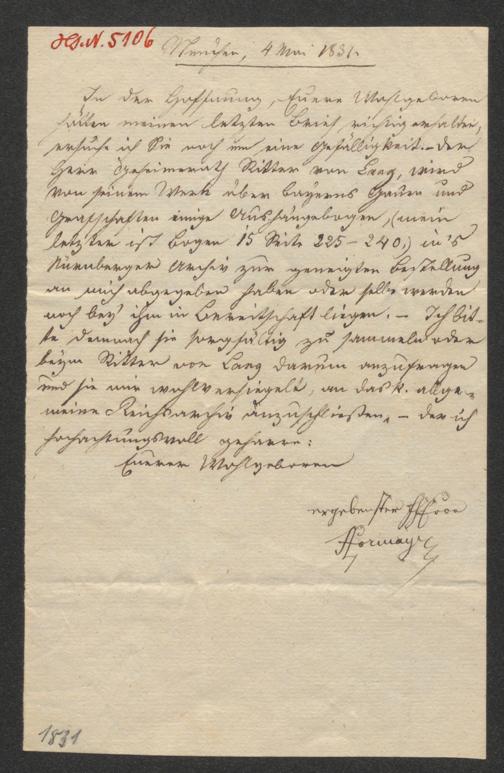 Hs. N. 5106
München, 4 Mai 1831.
In der Hoffnung, Euere Wohlgeboren
hätten meinen letzten Brief richtig erhalten,
ersuche ich Sie noch um eine Gefälligkeit. – der
Herr Geheimerath Ritter von Lang, wird
von seinem Werk über Bayerns Gauen und
Grafschaften einige Aushängebogen, (mein
letzter ist Bogen 15 Seite 225–240,) in's
Nürnberger Archiv zur geneigten Bestellung
an mich abgegeben haben oder selbe werden
noch bey ihm in Bereitschaft liegen. – Ich bit-
te demnach sie sorgfältig zu sammeln oder
beym Ritter von Lang darum anzufragen
und sie mir wohlversiegelt, an das k. allge-
meine Reichsarchiv anzuschließen, – der ich
hochachtungsvoll geharre:
Euerer Wohlgeboren
ergebenster
Hormayr
1831